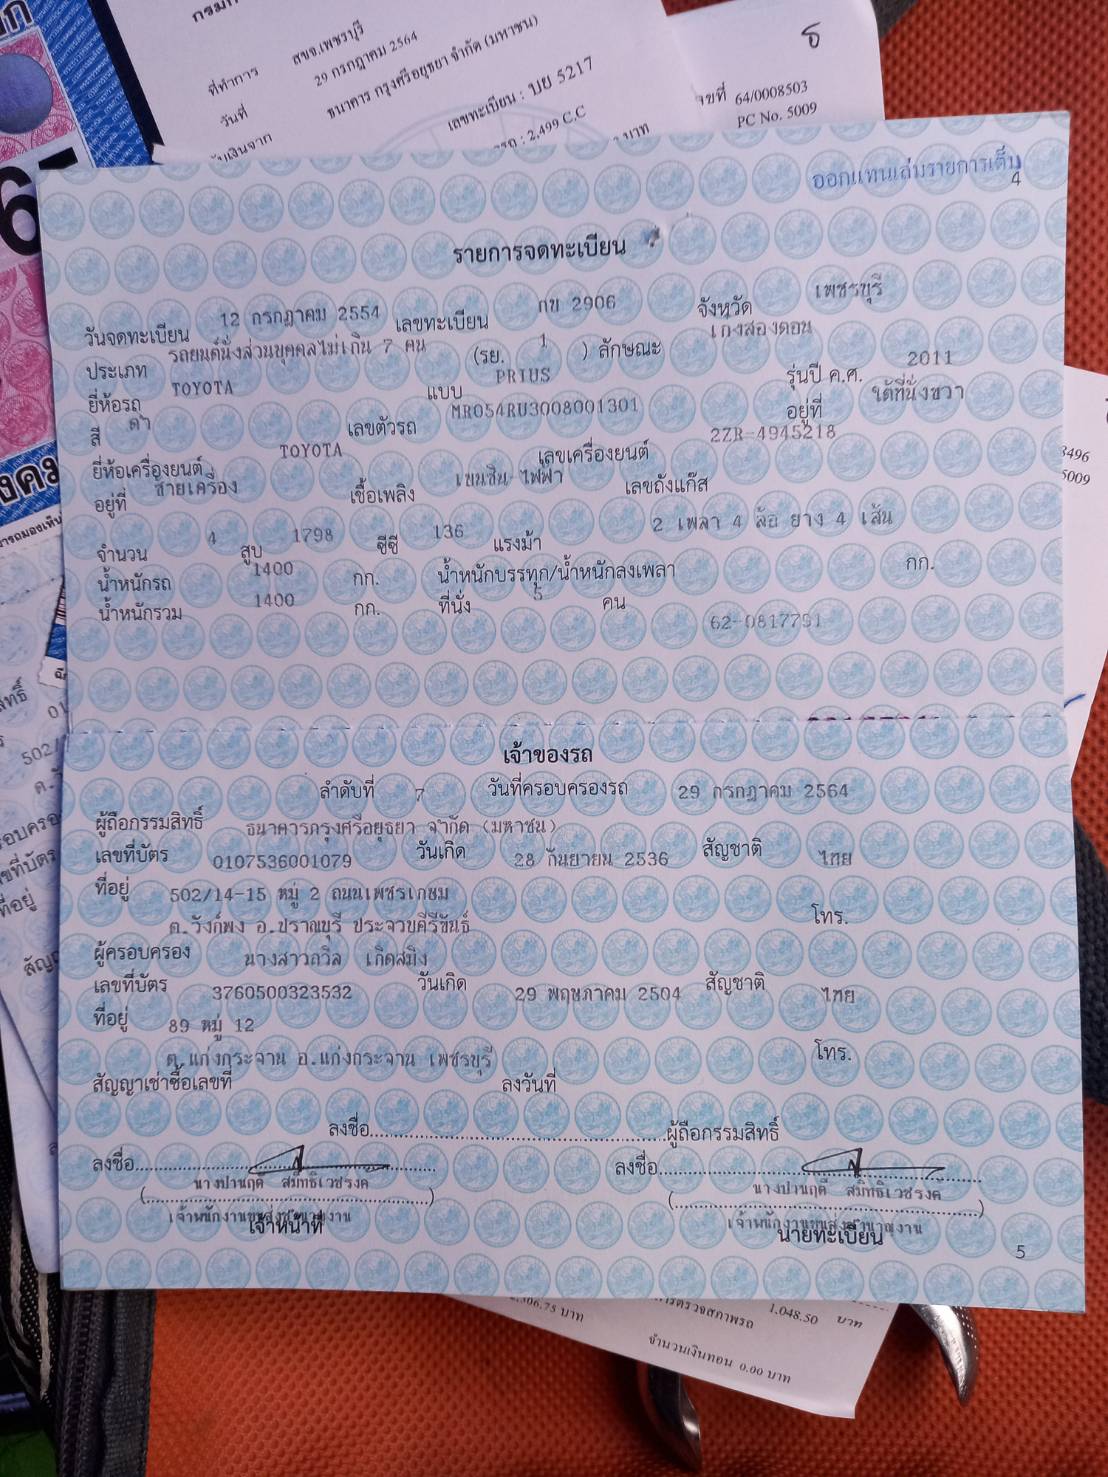 ที่ทำการ สขจ.เพชรบุรี
วันที่ 29 กรกฎาคม 2564
ธนาคาร กรุงศรีอยุธยา จำกัด (มหาชน)
เลขทะเบียน : บย 5217
2,499 C.C
64/0008503
PC No. 5009
ออกแทนเล่มรายการเต็ม
4
รายการจดทะเบียน
วันจดทะเบียน 12 กรกฎาคม 2554 เลขทะเบียน กข 2906 จังหวัด เพชรบุรี
ประเภท รถยนต์นั่งส่วนบุคคลไม่เกิน 7 คน (รย. 1 ) ลักษณะ เก๋งสองตอน
ยี่ห้อรถ TOYOTA แบบ PRIUS รุ่นปี ค.ศ. 2011
สี ดำ เลขตัวรถ MR054RU3008001301 อยู่ที่ ใต้ที่นั่งขวา
ยี่ห้อเครื่องยนต์ TOYOTA เลขเครื่องยนต์ 2ZR-4945218
อยู่ที่ ซ้ายเครื่อง เชื้อเพลิง เบนซิน-ไฟฟ้า เลขถังแก๊ส
จำนวน 4 สูบ 1798 ซีซี 136 แรงม้า 2 เพลา 4 ล้อ ยาง 4 เส้น
น้ำหนักรถ 1400 กก. น้ำหนักบรรทุก/น้ำหนักลงเพลา กก.
น้ำหนักรวม 1400 กก. ที่นั่ง 5 คน
62-0817791
เจ้าของรถ
ลำดับที่ 7 วันที่ครอบครองรถ 29 กรกฎาคม 2564
ผู้ถือกรรมสิทธิ์ ธนาคารกรุงศรีอยุธยา จำกัด (มหาชน)
เลขที่บัตร 0107536001079 วันเกิด 28 กันยายน 2536 สัญชาติ ไทย
ที่อยู่ 502/14-15 หมู่ 2 ถนนเพชรเกษม
ต.วังก์พง อ.ปราณบุรี ประจวบคีรีขันธ์ โทร.
ผู้ครอบครอง นางสาวถวิล เกิดสมิง
เลขที่บัตร 3760500323532 วันเกิด 29 พฤษภาคม 2504 สัญชาติ ไทย
ที่อยู่ 89 หมู่ 12
ต.แก่งกระจาน อ.แก่งกระจาน เพชรบุรี โทร.
สัญญาเช่าซื้อเลขที่ ลงวันที่
ลงชื่อ ผู้ถือกรรมสิทธิ์
ลงชื่อ ลงชื่อ
นางปานฤดี สมิทธิเวชรงค์ นางปานฤดี สมิทธิเวชรงค์
เจ้าพนักงานขนส่งชำนาญงาน เจ้าพนักงานขนส่งชำนาญงาน
เจ้าหน้าที่ นายทะเบียน
5
1,048.50 บาท
จำนวนเงินทอน 0.00 บาท